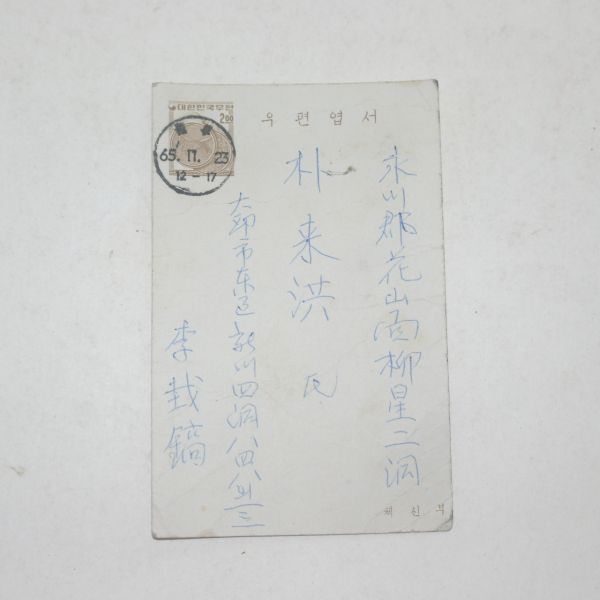 대한민국우편
2.00
65. 11. 23
12 - 17
우편엽서
永川郡花山面柳星二洞
朴来洪 氏
大邱市东区新川四洞八四八의三
李戟鎬
체신부